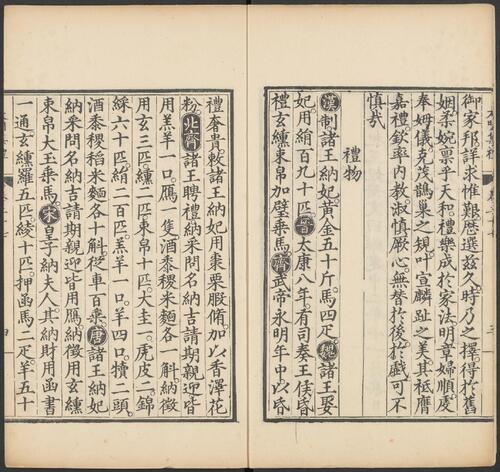 御家邦詳求惟艱歷選兹久時乃之擇得於舊
姻柔婉禀乎天和禮樂成於家法明章婦順虔
奉姆儀克茂鵲巢之規叶宣麟趾之美其祗膺
嘉禮欽率内教淑慎厥心無替於後於戲可不
慎哉
禮物
漢制諸王納妃黃金五十斤馬四疋魏諸王娶
妃用絹百九十匹晉太康八年有司奏王侯昏
禮玄纁束帛加璧乘馬齊武帝永明年中以昏
禮奢貴敕諸王納妃用棗栗腶脩加以香澤花
粉北齊諸王聘禮納采問名納吉請期親迎皆
用羔羊一口鴈一隻酒黍稷米麵各一斛納徵
用玄三匹纁二匹束帛十匹大圭一虎皮二錦
綵六十匹絹二百匹羔羊一口羊四口犢二頭
酒黍稷稻米麵各十斛從車百乘唐諸王納妃
納采問名納吉請期親迎皆用鴈納徵用玄纁
束帛大玉乘馬宋皇子納夫人其納財用函書
一通玄纁羅五匹綾十匹押函馬二疋羊五十